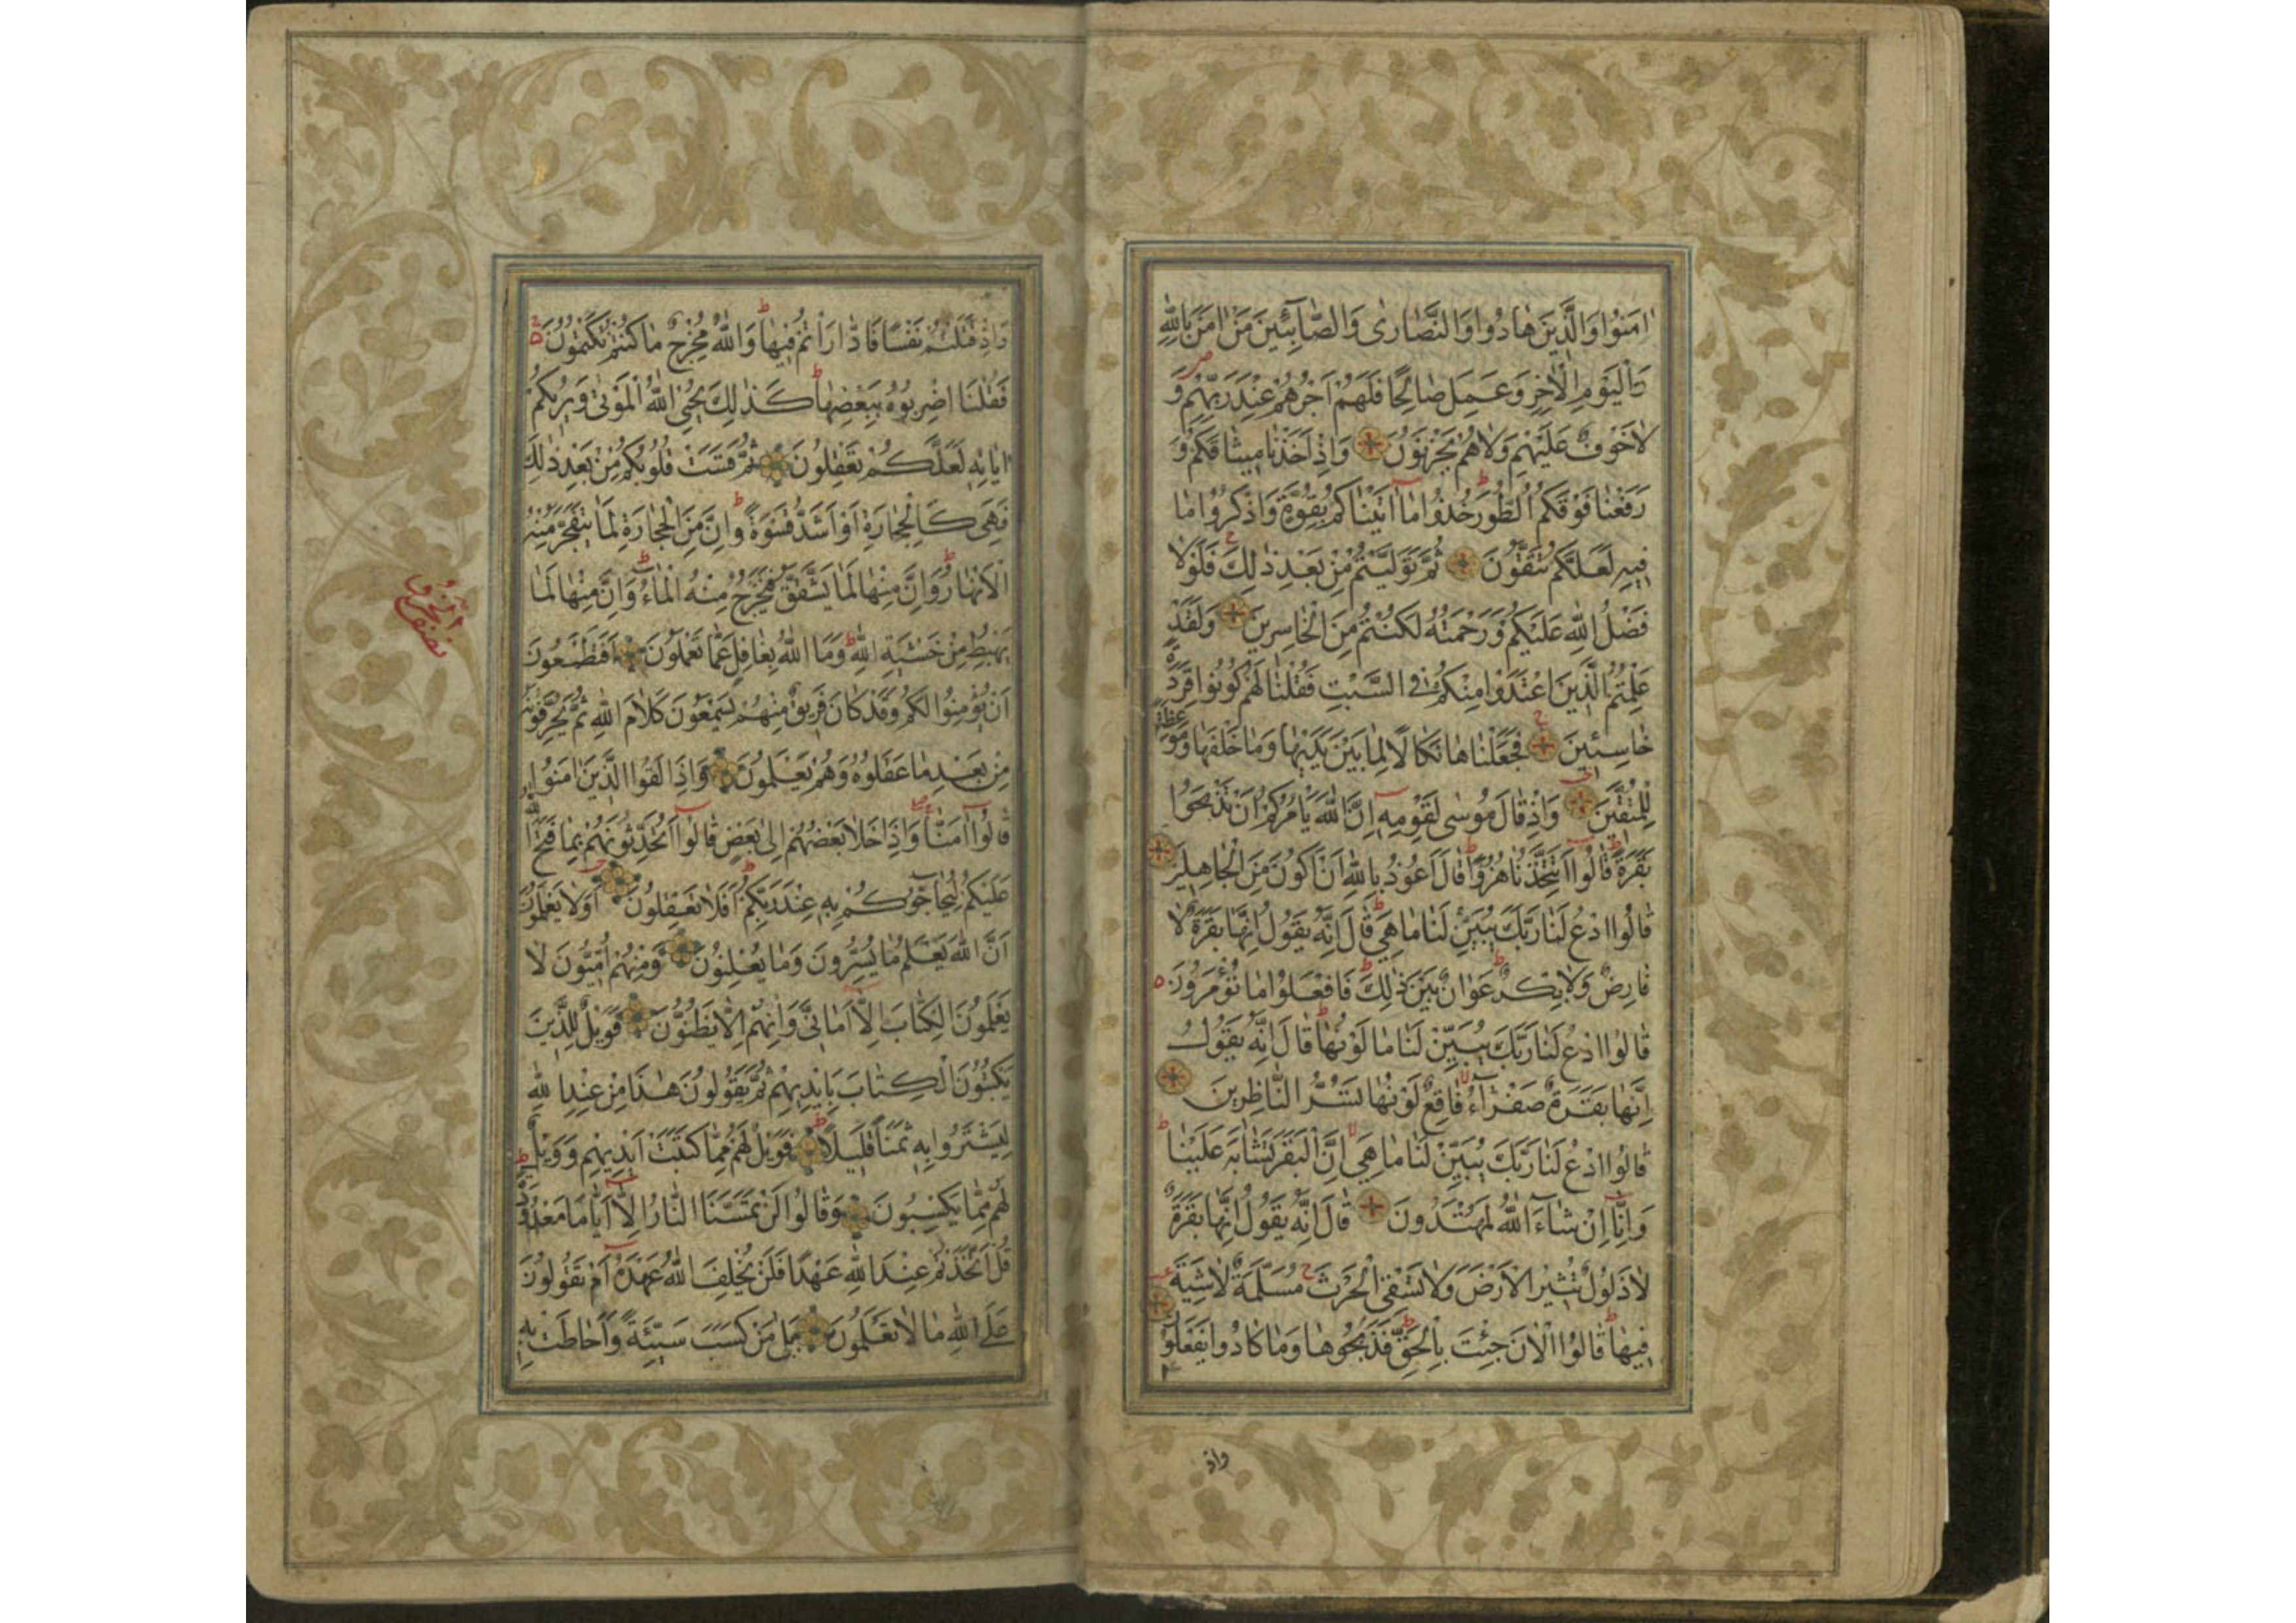 اٰمَنُوا وَالَّذِينَ هَادُوا وَالنَّصَارٰى وَالصَّابِئِينَ مَنْ اٰمَنَ بِاللّٰهِ
وَالْيَوْمِ الْاٰخِرِ وَعَمِلَ صَالِحًا فَلَهُمْ اَجْرُهُمْ عِنْدَ رَبِّهِمْ وَ
لَاخَوْفٌ عَلَيْهِمْ وَلَاهُمْ يَحْزَنُونَ وَاِذْ اَخَذْنَا مِيثَاقَكُمْ وَ
رَفَعْنَا فَوْقَكُمُ الطُّورَ خُذُوا مَا اٰتَيْنَاكُمْ بِقُوَّةٍ وَاذْكُرُوا مَا
فِيهِ لَعَلَّكُمْ تَتَّقُونَ ثُمَّ تَوَلَّيْتُمْ مِنْ بَعْدِ ذٰلِكَ فَلَوْلَا
فَضْلُ اللّٰهِ عَلَيْكُمْ وَرَحْمَتُهُ لَكُنْتُمْ مِنَ الْخَاسِرِينَ وَلَقَدْ
عَلِمْتُمُ الَّذِينَ اعْتَدَوْا مِنْكُمْ فِي السَّبْتِ فَقُلْنَا لَهُمْ كُونُوا قِرَدَةً
خَاسِئِينَ فَجَعَلْنَاهَا نَكَالًا لِمَا بَيْنَ يَدَيْهَا وَمَا خَلْفَهَا وَمَوْعِظَةً
لِلْمُتَّقِينَ وَاِذْ قَالَ مُوسٰى لِقَوْمِهِ اِنَّ اللّٰهَ يَأْمُرُكُمْ اَنْ تَذْبَحُوا
بَقَرَةً قَالُوا اَتَتَّخِذُنَا هُزُوًا قَالَ اَعُوذُ بِاللّٰهِ اَنْ اَكُونَ مِنَ الْجَاهِلِينَ
قَالُوا ادْعُ لَنَا رَبَّكَ يُبَيِّنْ لَنَا مَا هِيَ قَالَ اِنَّهُ يَقُولُ اِنَّهَا بَقَرَةٌ لَا
فَارِضٌ وَلَا بِكْرٌ عَوَانٌ بَيْنَ ذٰلِكَ فَافْعَلُوا مَا تُؤْمَرُونَ
قَالُوا ادْعُ لَنَا رَبَّكَ يُبَيِّنْ لَنَا مَا لَوْنُهَا قَالَ اِنَّهُ يَقُولُ
اِنَّهَا بَقَرَةٌ صَفْرَاءُ فَاقِعٌ لَوْنُهَا تَسُرُّ النَّاظِرِينَ
قَالُوا ادْعُ لَنَا رَبَّكَ يُبَيِّنْ لَنَا مَا هِيَ اِنَّ الْبَقَرَ تَشَابَهَ عَلَيْنَا
وَاِنَّا اِنْ شَاءَ اللّٰهُ لَمُهْتَدُونَ قَالَ اِنَّهُ يَقُولُ اِنَّهَا بَقَرَةٌ
لَا ذَلُولٌ تُثِيرُ الْاَرْضَ وَلَا تَسْقِي الْحَرْثَ مُسَلَّمَةٌ لَا شِيَةَ
فِيهَا قَالُوا الْاٰنَ جِئْتَ بِالْحَقِّ فَذَبَحُوهَا وَمَا كَادُوا يَفْعَلُونَ
واذ
وَاِذْ قَتَلْتُمْ نَفْسًا فَادَّارَأْتُمْ فِيهَا وَاللّٰهُ مُخْرِجٌ مَا كُنْتُمْ تَكْتُمُونَ
فَقُلْنَا اضْرِبُوهُ بِبَعْضِهَا كَذٰلِكَ يُحْيِي اللّٰهُ الْمَوْتٰى وَيُرِيكُمْ
اٰيَاتِهِ لَعَلَّكُمْ تَعْقِلُونَ ثُمَّ قَسَتْ قُلُوبُكُمْ مِنْ بَعْدِ ذٰلِكَ
فَهِيَ كَالْحِجَارَةِ اَوْ اَشَدُّ قَسْوَةً وَاِنَّ مِنَ الْحِجَارَةِ لَمَا يَتَفَجَّرُ مِنْهُ
الْاَنْهَارُ وَاِنَّ مِنْهَا لَمَا يَشَّقَّقُ فَيَخْرُجُ مِنْهُ الْمَاءُ وَاِنَّ مِنْهَا لَمَا
يَهْبِطُ مِنْ خَشْيَةِ اللّٰهِ وَمَا اللّٰهُ بِغَافِلٍ عَمَّا تَعْمَلُونَ اَفَتَطْمَعُونَ
اَنْ يُؤْمِنُوا لَكُمْ وَقَدْ كَانَ فَرِيقٌ مِنْهُمْ يَسْمَعُونَ كَلَامَ اللّٰهِ ثُمَّ يُحَرِّفُونَهُ
مِنْ بَعْدِ مَا عَقَلُوهُ وَهُمْ يَعْلَمُونَ وَاِذَا لَقُوا الَّذِينَ اٰمَنُوا
قَالُوا اٰمَنَّا وَاِذَا خَلَا بَعْضُهُمْ اِلٰى بَعْضٍ قَالُوا اَتُحَدِّثُونَهُمْ بِمَا فَتَحَ اللّٰهُ
عَلَيْكُمْ لِيُحَاجُّوكُمْ بِهِ عِنْدَ رَبِّكُمْ اَفَلَا تَعْقِلُونَ اَوَلَا يَعْلَمُونَ
اَنَّ اللّٰهَ يَعْلَمُ مَا يُسِرُّونَ وَمَا يُعْلِنُونَ وَمِنْهُمْ اُمِّيُّونَ لَا
يَعْلَمُونَ الْكِتَابَ اِلَّا اَمَانِيَّ وَاِنْهُمْ اِلَّا يَظُنُّونَ فَوَيْلٌ لِلَّذِينَ
يَكْتُبُونَ الْكِتَابَ بِاَيْدِيهِمْ ثُمَّ يَقُولُونَ هٰذَا مِنْ عِنْدِ اللّٰهِ
لِيَشْتَرُوا بِهِ ثَمَنًا قَلِيلًا فَوَيْلٌ لَهُمْ مِمَّا كَتَبَتْ اَيْدِيهِمْ وَوَيْلٌ
لَهُمْ مِمَّا يَكْسِبُونَ وَقَالُوا لَنْ تَمَسَّنَا النَّارُ اِلَّا اَيَّامًا مَعْدُودَةً
قُلْ اَتَّخَذْتُمْ عِنْدَ اللّٰهِ عَهْدًا فَلَنْ يُخْلِفَ اللّٰهُ عَهْدَهُ اَمْ تَقُولُونَ
عَلَى اللّٰهِ مَا لَا تَعْلَمُونَ بَلٰى مَنْ كَسَبَ سَيِّئَةً وَاَحَاطَتْ بِهِ